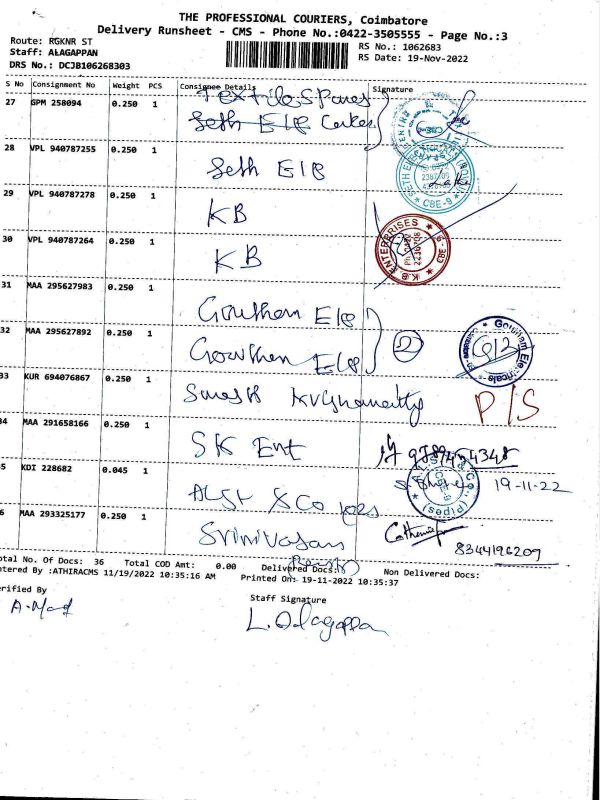 THE PROFESSIONAL COURIERS, Coimbatore
Delivery Runsheet - CMS - Phone No.:0422-3505555 - Page No.:3
Route: RGKNR ST
Staff: ALAGAPPAN
DRS No.: DCJB106268303
RS No.: 1062683
RS Date: 19-Nov-2022
S No Consignment No Weight PCS Consignee Details Signature
27 GPM 258094 0.250 1 Textile Spares
Seth E/B
28 VPL 940787255 0.250 1 Seth E/B
29 VPL 940787278 0.250 1 KB
30 VPL 940787264 0.250 1 KB
K.B. ENTERPRISES
CBE-9
31 MAA 295627983 0.250 1 Goutham E/B
32 MAA 295627892 0.250 1 Goutham E/B
Goutham Electricals
33 KUR 694076867 0.250 1 P/S
34 MAA 291658166 0.250 1 SK Ent
35 KDI 228682 0.045 1 & Co 19-11-22
36 MAA 293325177 0.250 1 Srinivasan
8344196209
Total No. Of Docs: 36 Total COD Amt: 0.00 Delivered Docs: Non Delivered Docs:
Entered By :ATHIRACMS 11/19/2022 10:35:16 AM Printed On: 19-11-2022 10:35:37
Verified By Staff Signature
L. Alagappan